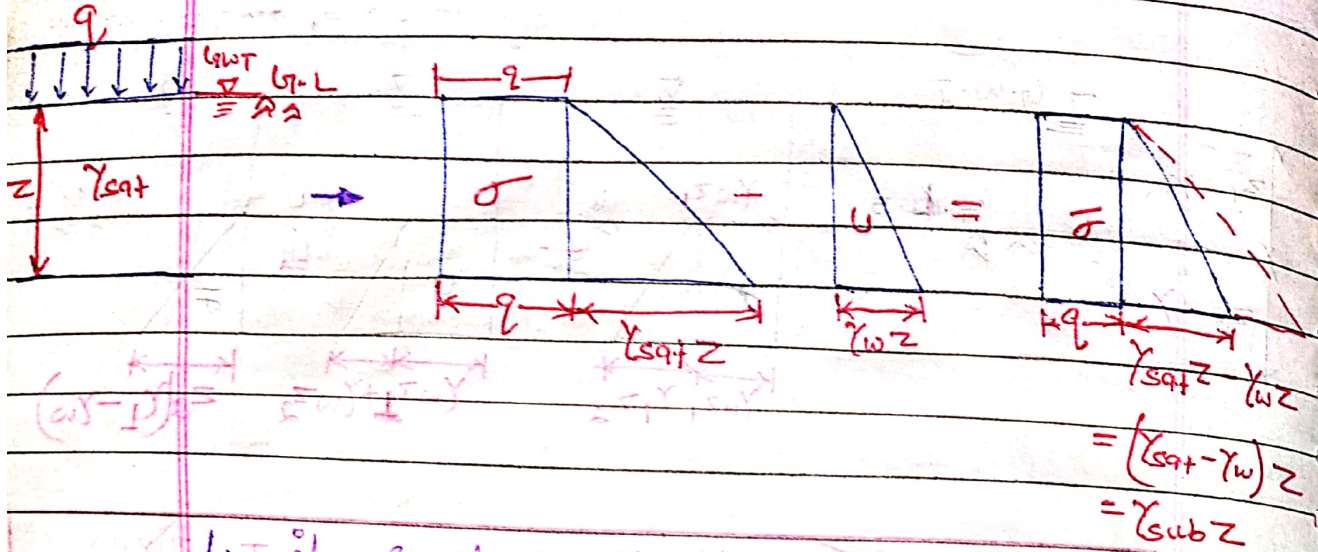 q
GWT G.L
q
z γsat → σ - u = σ̄
q γsat z γw z q γsat z - γw z
= (γsat - γw) z
= γsub z